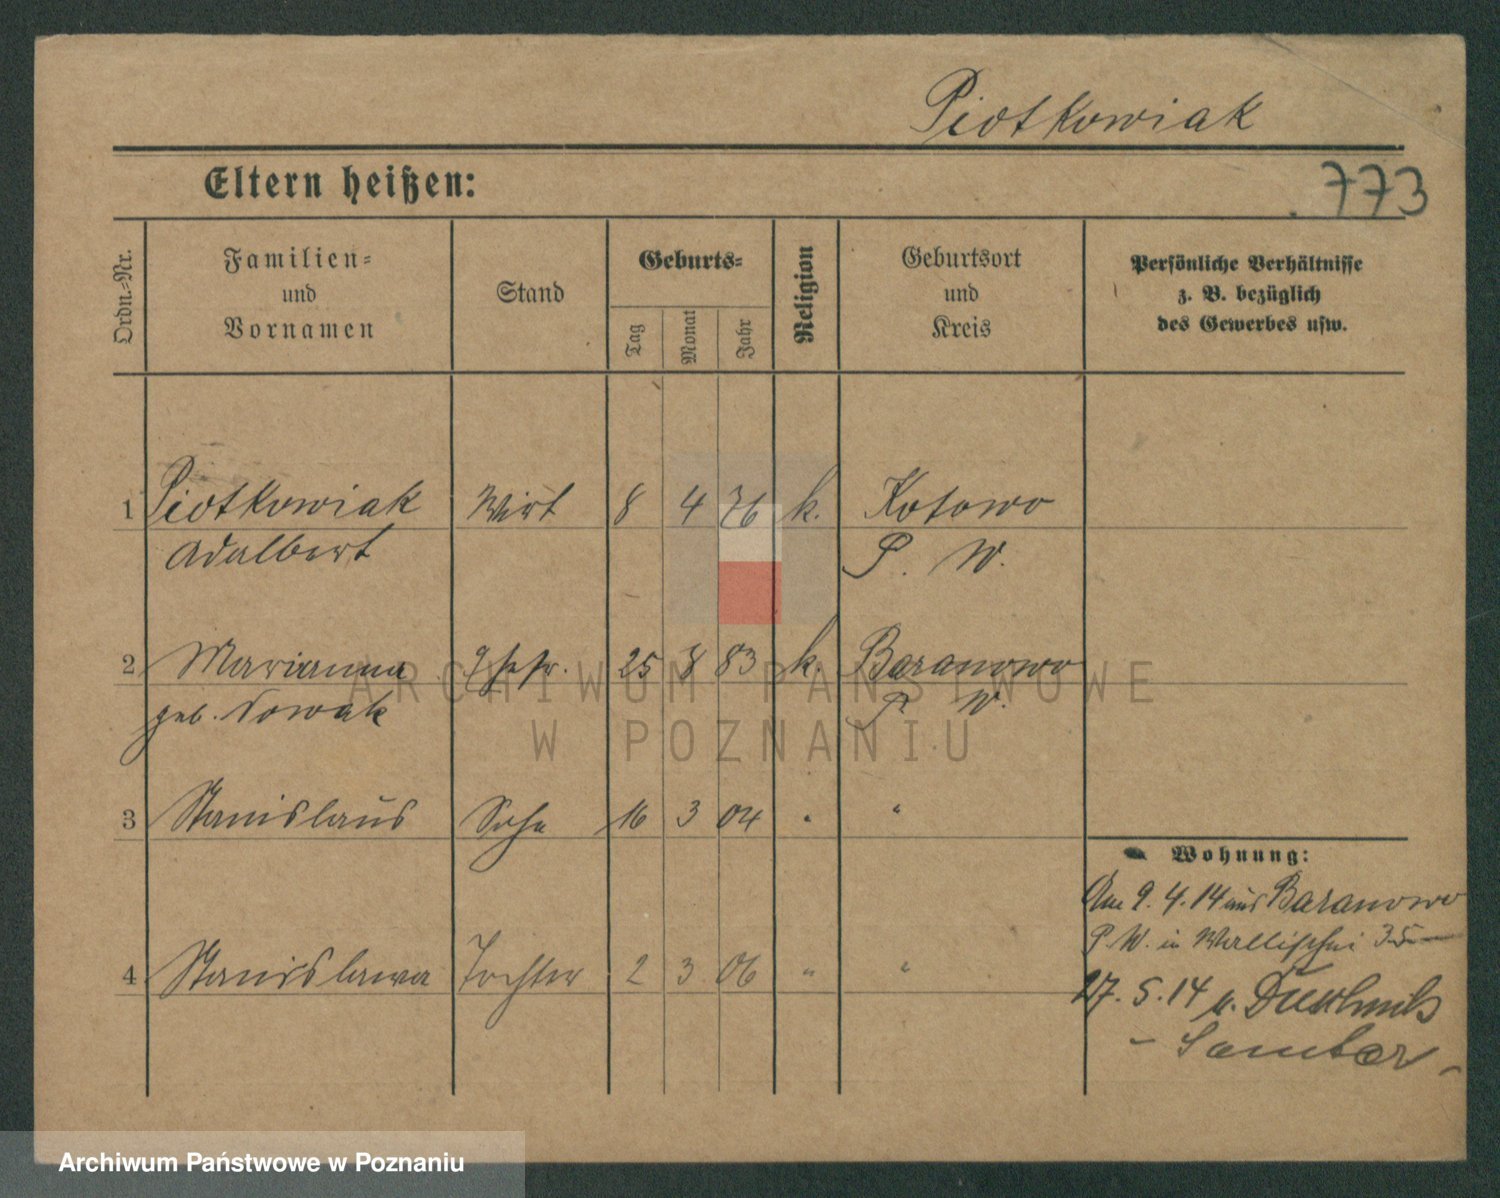 Piotkowiak
Eltern heißen:
773
Ordn.-Nr.
Familien-
und
Vornamen
Stand
Geburts-
Tag
Monat
Jahr
Religion
Geburtsort
und
Kreis
Persönliche Verhältnisse
z. B. bezüglich
des Gewerbes usw.
1 Piotkowiak Wirt 8 4 76 k. Kotowo
Adalbert P. W.
2 Marianna Ehefr. 25 8 83 k. Baranowo
geb. Nowak P. W.
3 Stanislaus Sohn 16 3 04 " "
Wohnung:
Am 9. 4. 14 aus Baranowo
P. W. in Wallischei 35
4 Stanislawa Tochter 2 3 06 " "
27. 5. 14 n.
- Samter -
ARCHIWUM PAŃSTWOWE
W POZNANIU
Archiwum Państwowe w Poznaniu